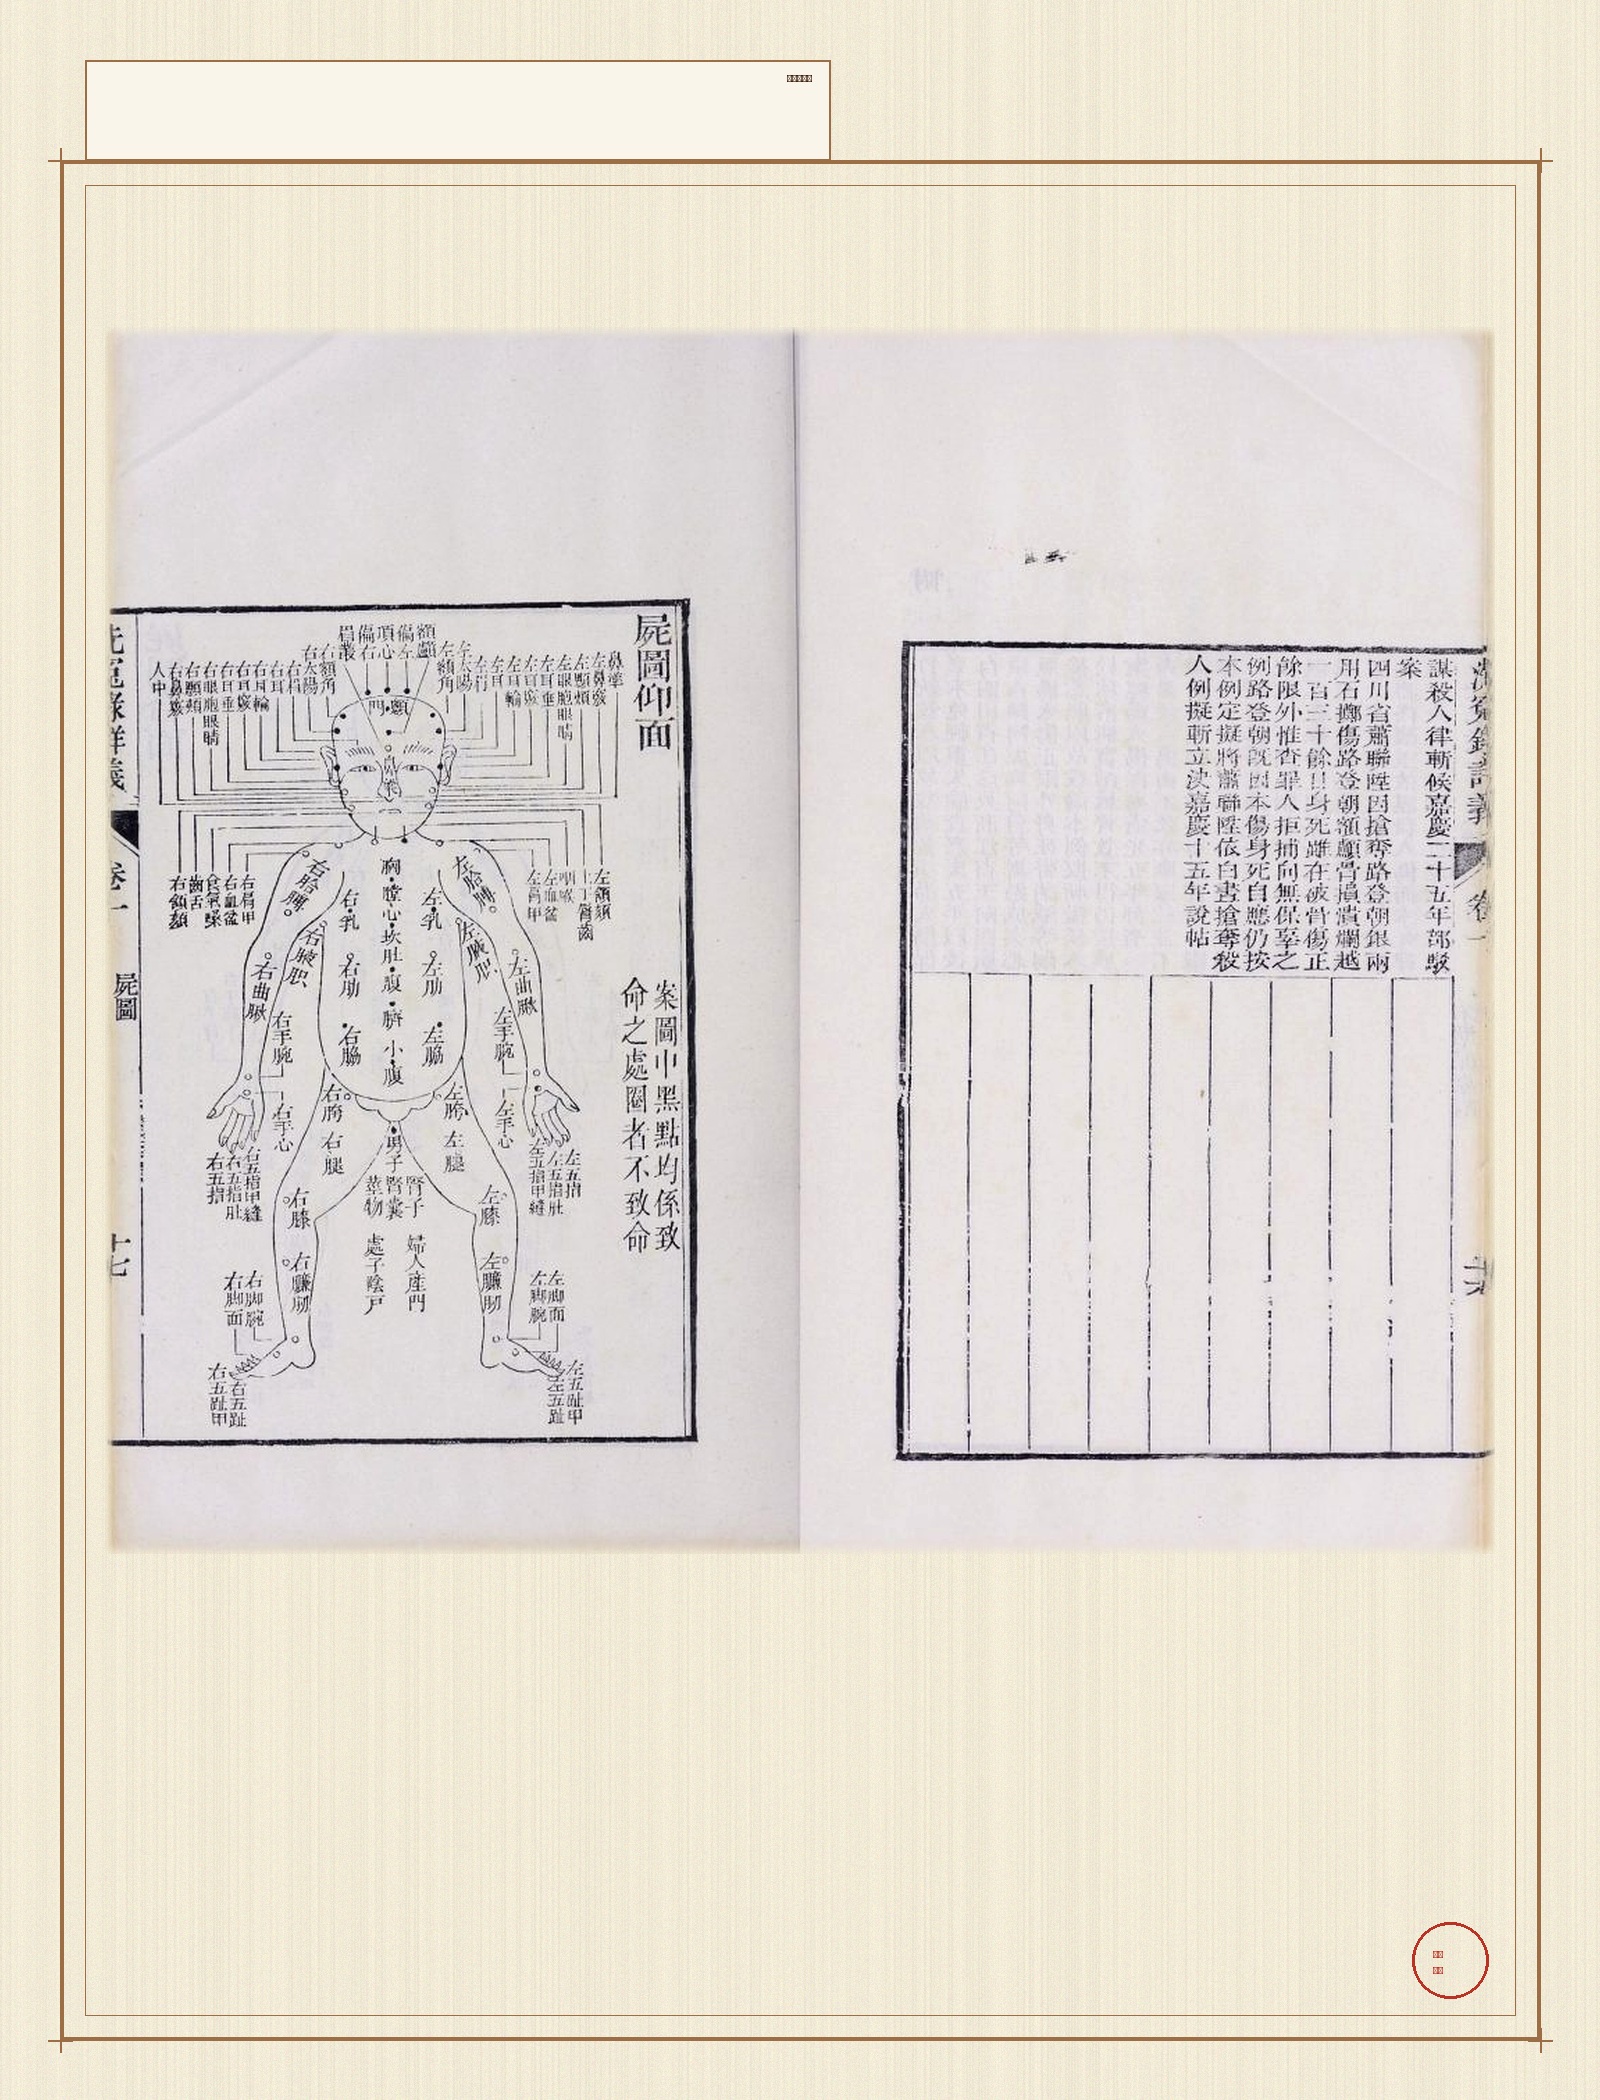 謀殺人律斬候嘉慶二十五年部駁
案
四川省蕭聯陞因搶奪路登朝銀兩
用石擲傷路登朝額顱骨損潰爛越
一百三十餘日身死雖在破骨傷正
餘限外惟查罪人拒捕向無保辜之
例路登朝既因本傷身死自應仍按
本例定擬將蕭聯陞依白晝搶奪殺
人例擬斬立決嘉慶十五年說帖
卷一
屍圖仰面
案圖中黑點均係致
命之處圈者不致命
鼻準
左鼻竅
左顋頰
左眼胞眼睛
左耳垂
左耳竅
左耳輪
左耳
左太陽
左額角
額顱
偏左
頂心
偏右
眉叢
右額角
右太陽
右耳
右耳輪
右耳竅
右耳垂
右眼胞眼睛
右顋頰
右鼻竅
人中
顖門
左頷頦
咽喉
左血盆
左肩甲
右肩甲
右血盆
食氣嗓
齒舌
右頷頦
左胳膊
左腋胑
左曲䐐
左手腕
左手心
左五指
左五指肚
左五指甲縫
左乳
左肋
左脇
胸膛
心坎
肚腹
臍
小腹
右乳
右肋
右脇
右胳膊
右腋胑
右曲䐐
右手腕
右手心
右五指甲縫
右五指肚
右五指
左胯
左腿
左膝
左臁肕
左脚面
左脚腕
左五趾甲
左五趾
腎子
腎囊
男子
莖物
婦人産門
處子陰戸
右胯
右腿
右膝
右臁肕
右脚腕
右脚面
右五趾
右五趾甲
洗冤錄詳義
卷一
屍圖
十七